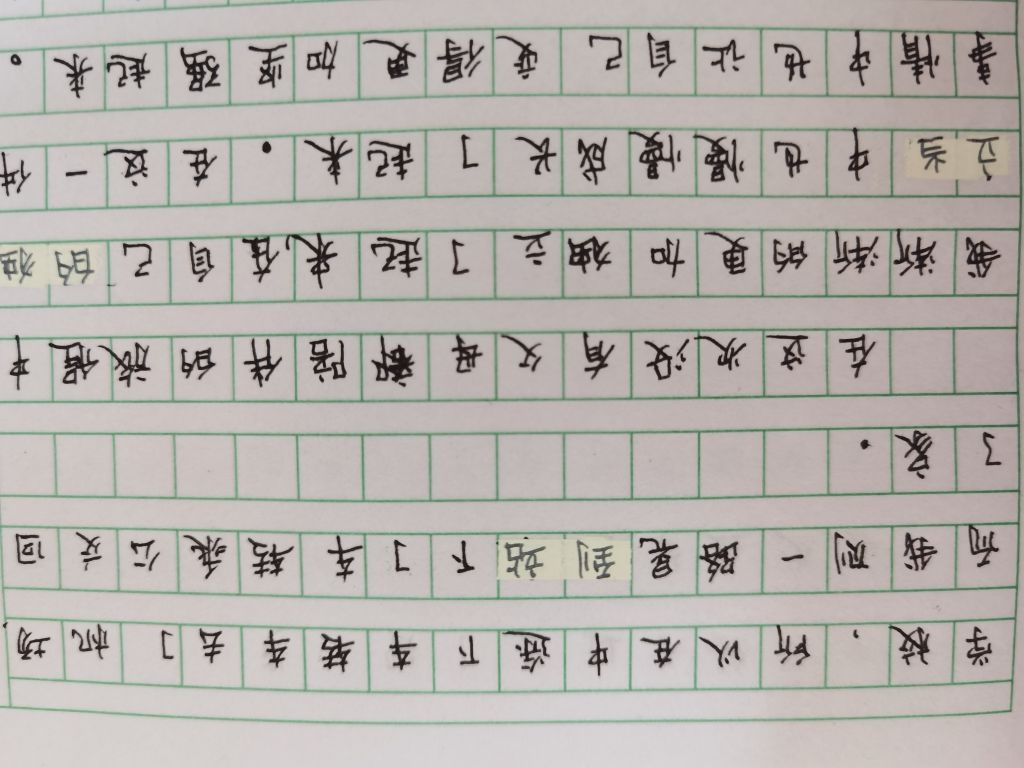 学校，所以在中途下车转车去了机场，
而我则一路晃到站下了车转乘公交回
了家。
在这次没有父母陪伴的旅程中
我渐渐的更加独立了起来，在自己的独
立当中也慢慢成长了起来。在这一件
事情中也让自己变得更加坚强起来。